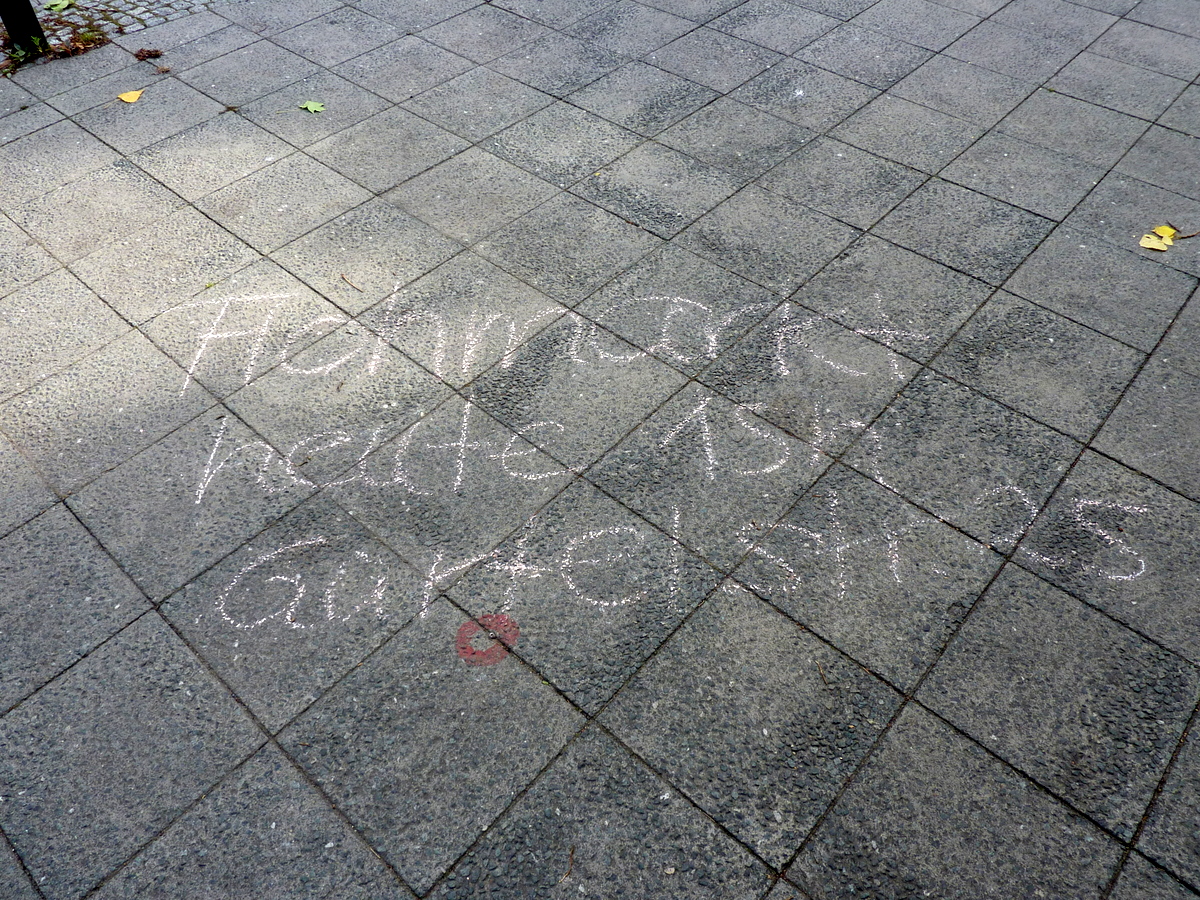 Flohmarkt
heute 15h
Gürtelstr. 25